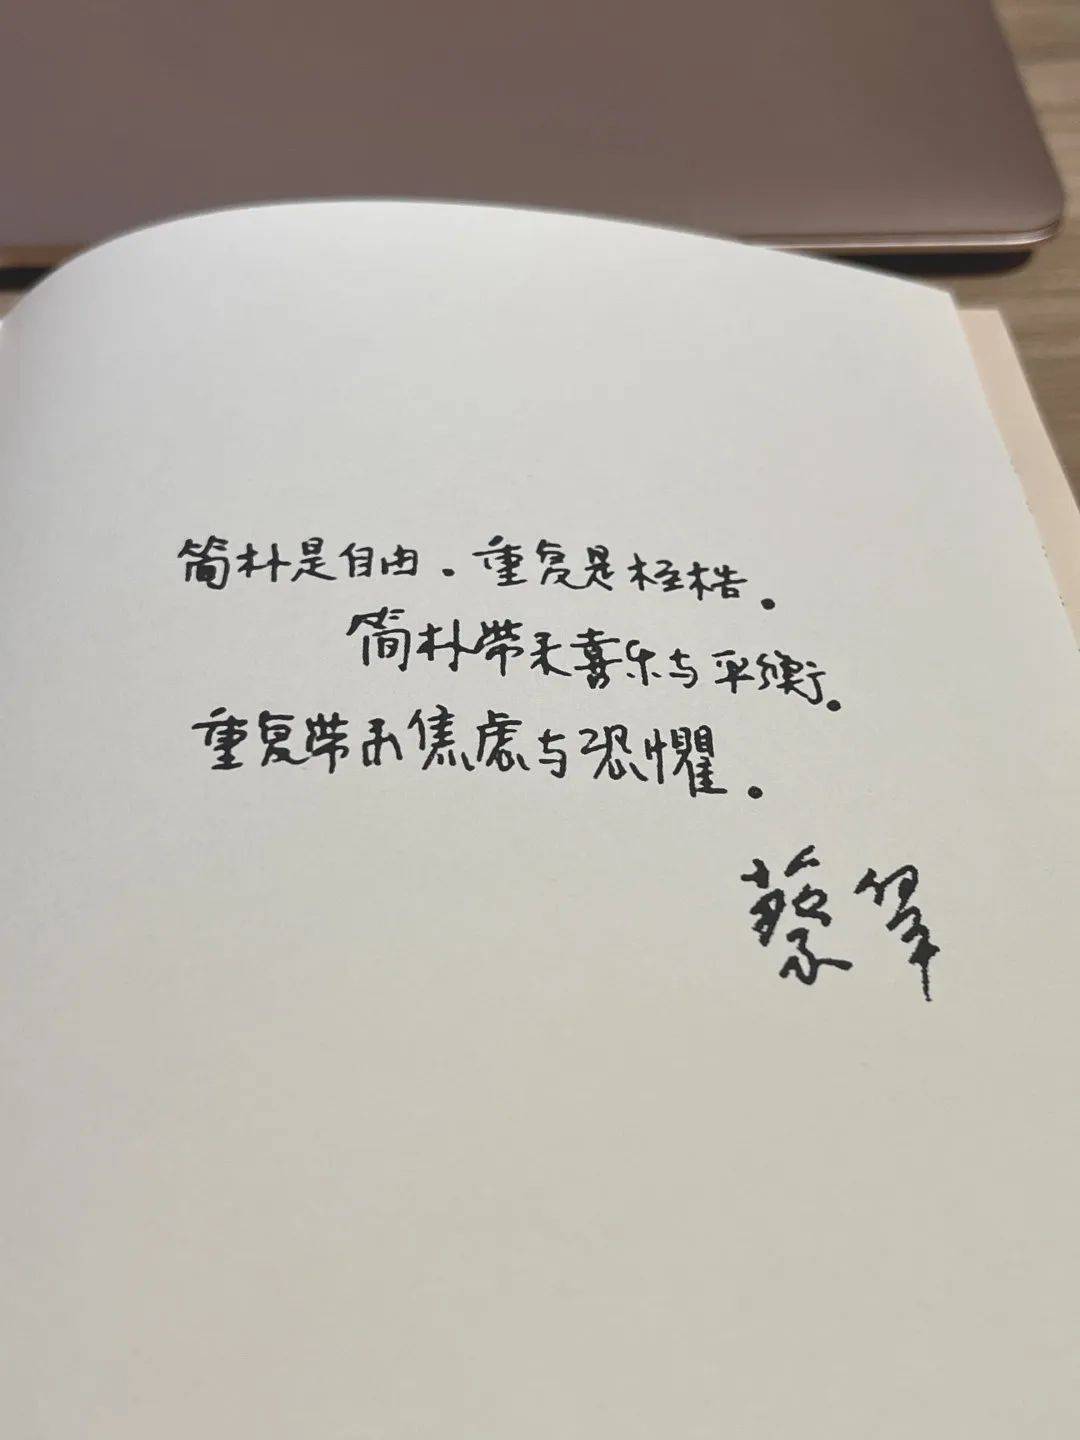 简朴是自由.重复是桎梏。
简朴带来喜乐与平衡。
重复带来焦虑与恐惧。
蔡